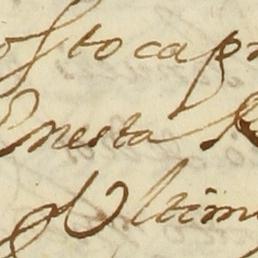 osto capr
Onesta R
Ultim